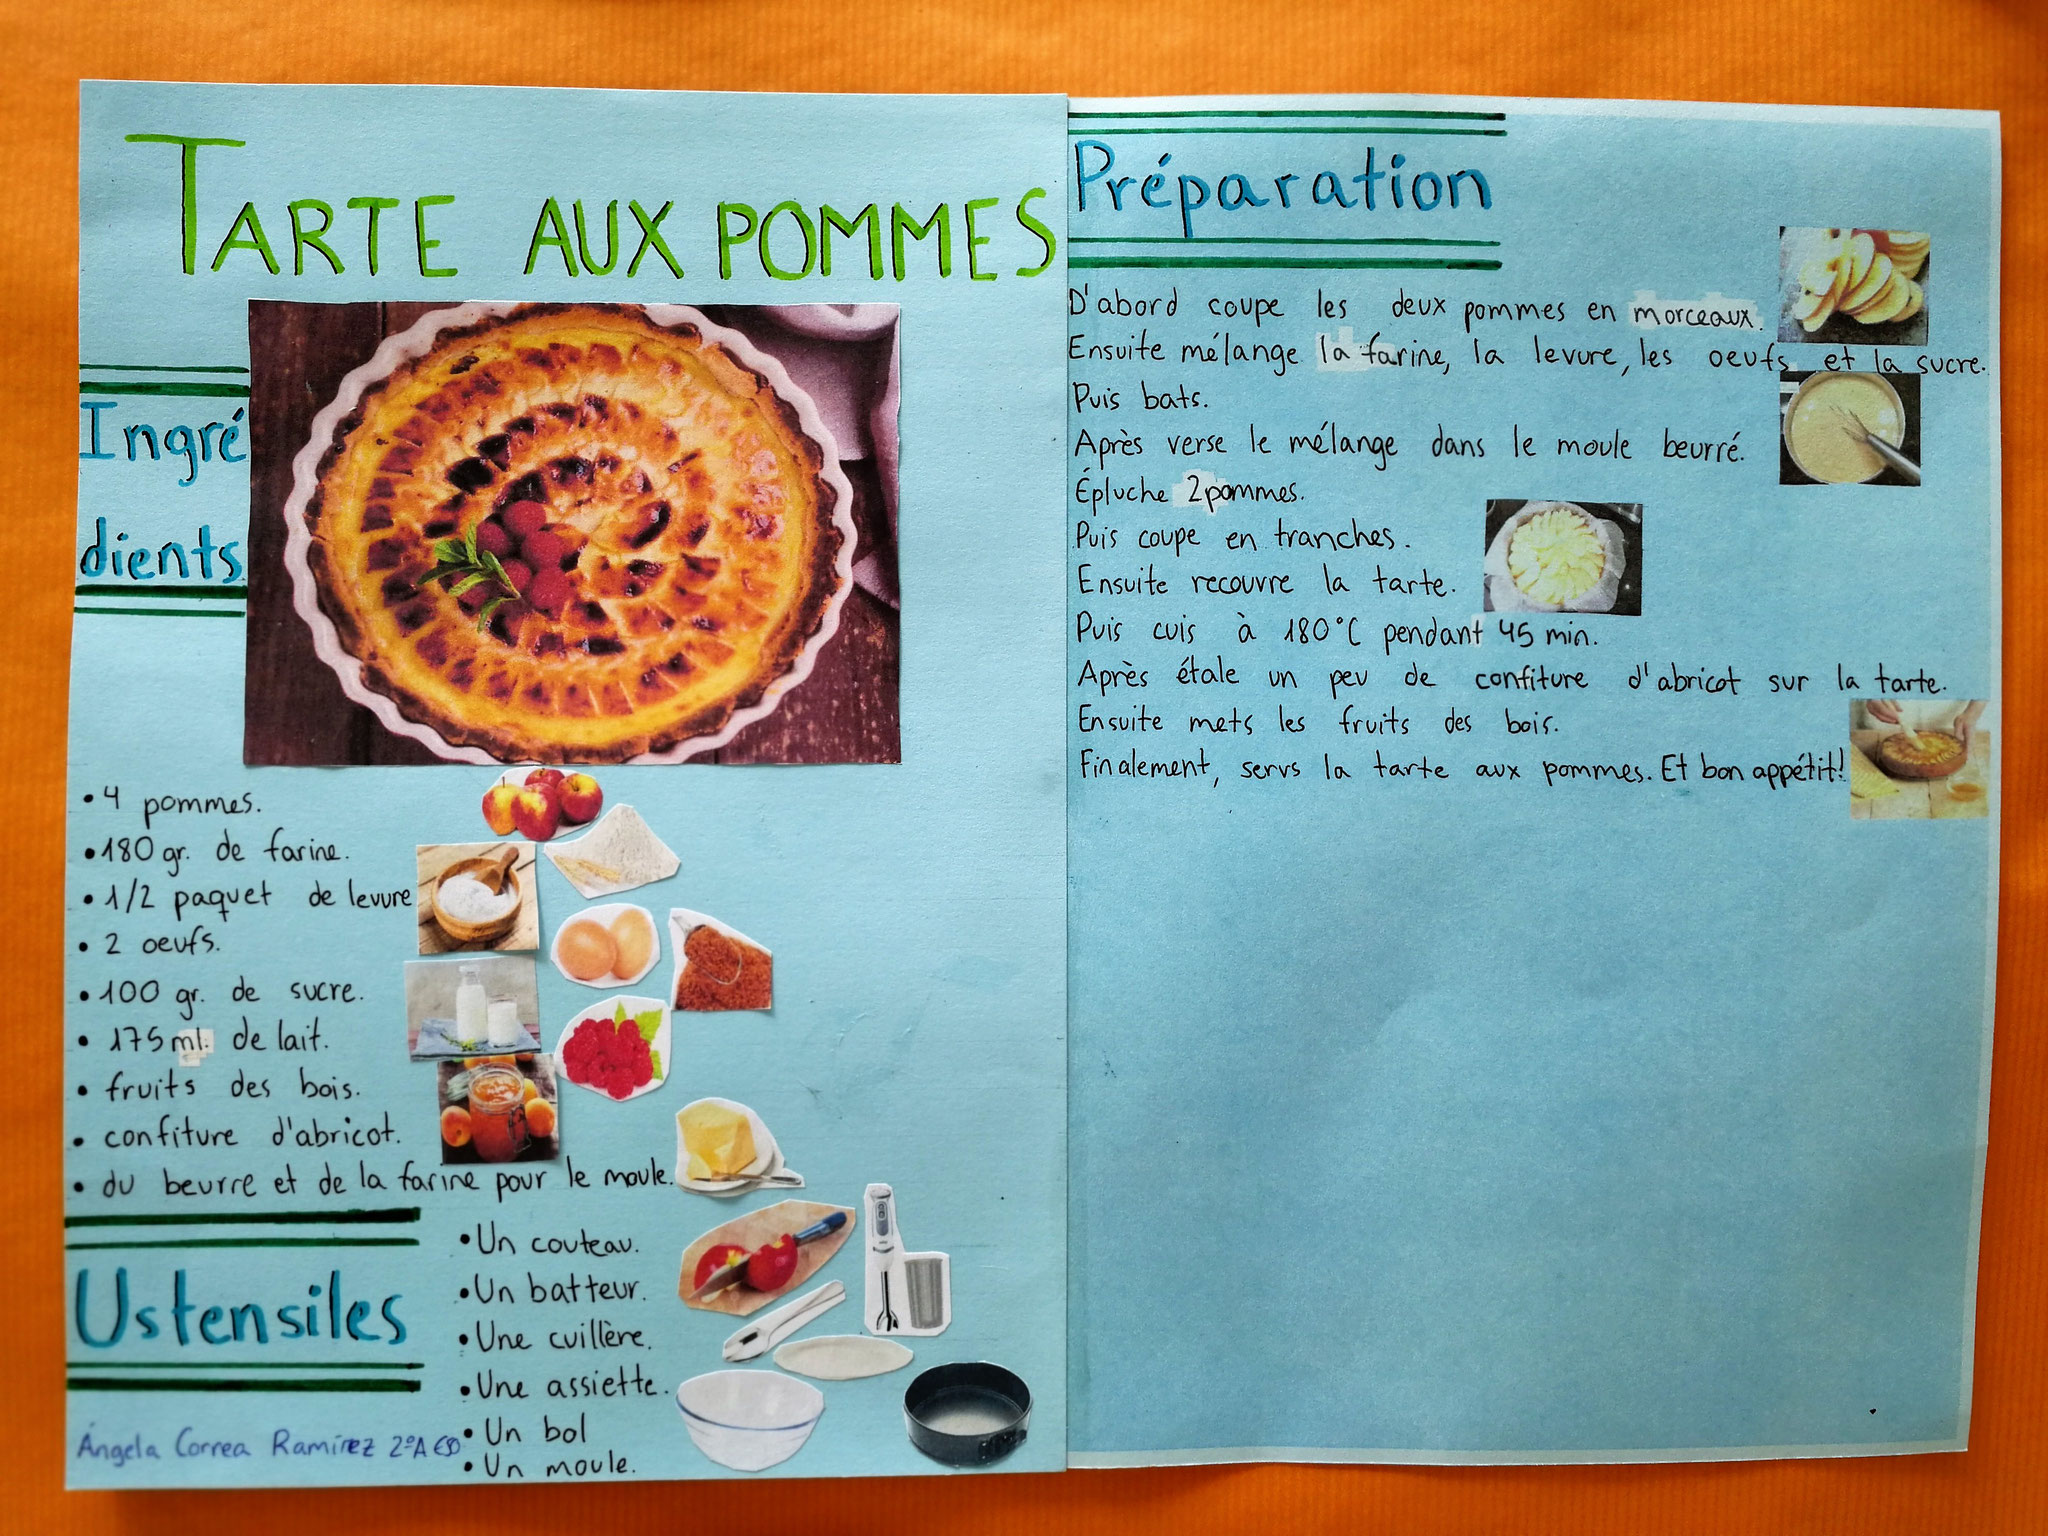 TARTE AUX POMMES
Ingré
dients
• 4 pommes.
• 180 gr. de farine.
• 1/2 paquet de levure
• 2 oeufs.
• 100 gr. de sucre.
• 175 ml. de lait.
• fruits des bois.
• confiture d'abricot.
• du beurre et de la farine pour le moule.
Ustensiles
• Un couteau.
• Un batteur.
• Une cuillère.
• Une assiette.
• Un bol
• Un moule.
Ángela Correa Ramírez 2ºA ESO
Préparation
D'abord coupe les deux pommes en morceaux.
Ensuite mélange la farine, la levure, les oeufs et la sucre.
Puis bats.
Après verse le mélange dans le moule beurré.
Épluche 2 pommes.
Puis coupe en tranches.
Ensuite recouvre la tarte.
Puis cuis à 180°C pendant 45 min.
Après étale un peu de confiture d'abricot sur la tarte.
Ensuite mets les fruits des bois.
Finalement, servs la tarte aux pommes. Et bon appétit!